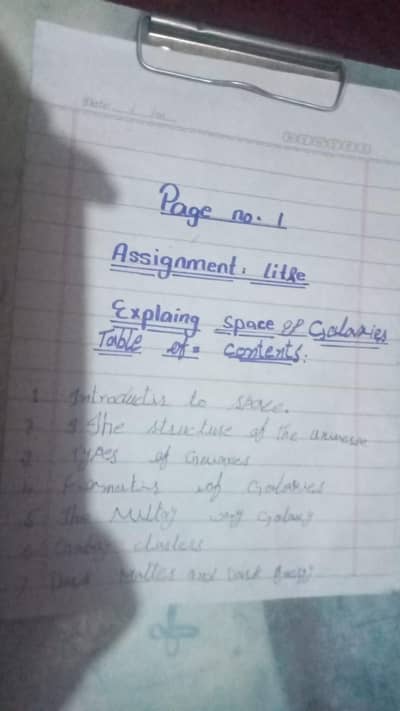 Date
Page no. 1
Assignment: litle
Explaing space of Galaxies
Table of= contents:
1 Introductis to space.
2 The structure of the universe
3 Types of
4 of Galaxies
5 The Milky way Galaxy
6 clusters
7 Dark Matter and Dark